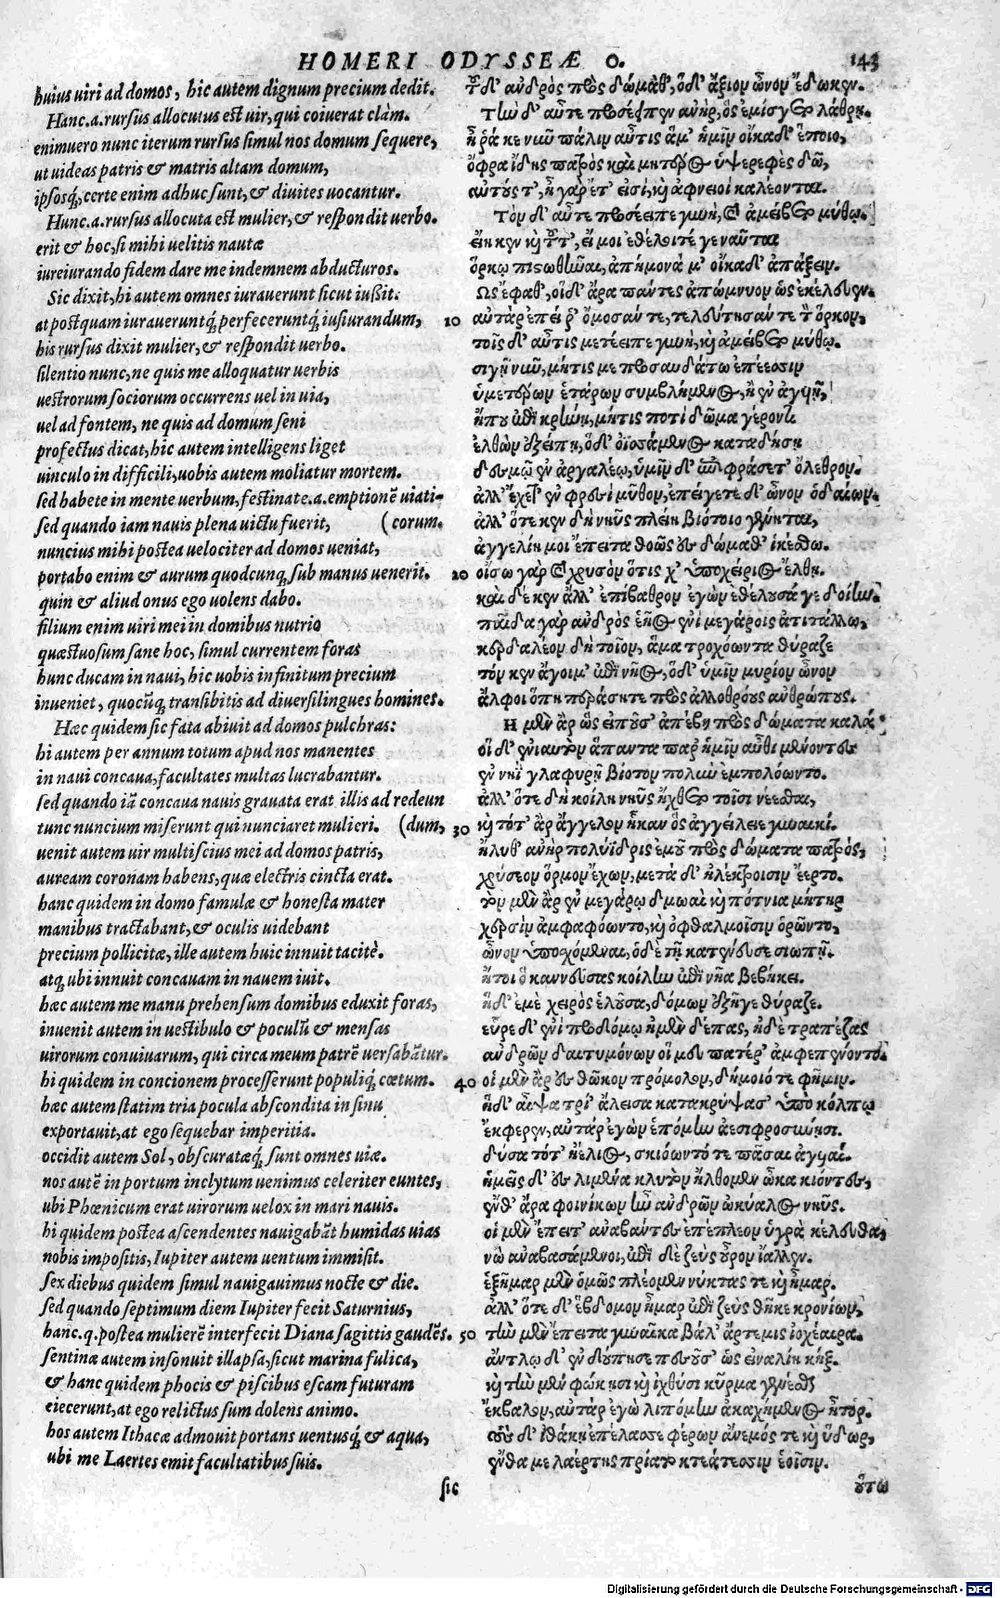 HOMERI ODYSSEÆ O. 143
huius uiri ad domos, hic autem dignum precium dedit.
Hanc.a.rursus allocutus est uir, qui coiuerat clàm.
enimuero nunc iterum rursus simul nos domum sequere,
ut uideas patris & matris altam domum,
ipsosq́;, certe enim adhuc sunt, & diuites uocantur.
Hunc.a.rursus allocuta est mulier, & respondit uerbo.
erit & hoc, si mihi uelitis nautæ
iureiurando fidem dare me indemnem abducturos.
Sic dixit, hi autem omnes iurauerunt sicut iussit.
at postquam iurauerunt q́; perfeceruntq́; iusiurandum,
his rursus dixit mulier, & respondit uerbo.
silentio nunc, ne quis me alloquatur uerbis
uestrorum sociorum occurrens uel in uia,
uel ad fontem, ne quis ad domum seni
profectus dicat, hic autem intelligens liget
uinculo in difficili, uobis autem moliatur mortem.
sed habete in mente uerbum, festinate.a.emptionē uiati-
sed quando iam nauis plena uictu fuerit, (corum.
nuncius mihi postea uelociter ad domos ueniat,
portabo enim & aurum quodcunq; sub manus uenerit.
quin & aliud onus ego uolens dabo.
filium enim uiri mei in domibus nutrio
quæstuosum sane hoc, simul currentem foras
hunc ducam in naui, hic uobis infinitum precium
inueniet, quocūq; transibitis ad diuersilingues homines.
Hæc quidem sic fata abiuit ad domos pulchras:
hi autem per annum totum apud nos manentes
in naui concaua, facultates multas lucrabantur.
sed quando iā concaua nauis grauata erat illis ad redeun
tunc nuncium miserunt qui nunciaret mulieri. (dum,
uenit autem uir multiscius mei ad domos patris,
auream coronam habens, quæ electris cincta erat.
hanc quidem in domo famulæ & honesta mater
manibus tractabant, & oculis uidebant
precium pollicitæ, ille autem huic innuit tacitè.
atq; ubi innuit concauam in nauem iuit.
hæc autem me manu prehensum domibus eduxit foras,
inuenit autem in uestibulo & poculū & mensas
uirorum conuiuarum, qui circa meum patrē uersabātur.
hi quidem in concionem processerunt populiq́; cœtum.
hæc autem statim tria pocula abscondita in sinu
exportauit, at ego sequebar imperitia.
occidit autem Sol, obscuratæq́; sunt omnes uiæ.
nos autē in portum inclytum uenimus celeriter euntes,
ubi Phœnicum erat uirorum uelox in mari nauis.
hi quidem postea ascendentes nauigabāt humidas uias
nobis impositis, Iupiter autem uentum immisit.
sex diebus quidem simul nauigauimus nocte & die.
sed quando septimum diem Iupiter fecit Saturnius,
hanc.q.postea mulierē interfecit Diana sagittis gaudēs.
sentinæ autem insonuit illapsa, sicut marina fulica,
& hanc quidem phocis & piscibus escam futuram
eiecerunt, at ego relictus sum dolens animo.
hos autem Ithacæ admouit portans uentusq́; & aqua,
ubi me Laertes emit facultatibus suis.
sic
τοῦδ' ἀνδρὸς πρὸς δώμαθ', ὅδ' ἄξιον ὦνον ἔδωκεν.
Τὴν δ' αὖτε προσέειπεν ἀνὴρ, ὃς ἐμίσγετο λάθρη.
ἦ ῥά κε νῦν πάλιν αὖτις ἅμ' ἡμῖν οἴκαδ' ἕποιο,
ὄφρα ἴδης πατρὸς καὶ μητέρος ὑψερεφὲς δῶ,
αὐτούς τ', ἦ γὰρ ἔτ' εἰσί, καὶ ἀφνειοὶ καλέονται.
Τὸν δ' αὖτε προσέειπε γυνή, καὶ ἀμείβετο μύθῳ.
εἴη κεν καὶ τοῦτ', εἴ μοι ἐθέλοιτέ γε ναῦται
ὅρκῳ πιστωθῆναι, ἀπήμονά μ' οἴκαδ' ἀπάξειν.
Ως ἔφαθ', οἱ δ' ἄρα πάντες ἀπώμνυον ὡς ἐκέλευεν.
10 αὐτὰρ ἐπεί ῥ' ὄμοσάν τε, τελεύτησαν τε τὸν ὅρκον,
τοῖς δ' αὖτις μετέειπε γυνή, καὶ ἀμείβετο μύθῳ.
σιγῇ νῦν, μήτις με προσαυδάτω ἐπέεσσιν
ὑμετέρων ἑτάρων συμβλήμενος, ἢ ἐν ἀγυιῇ,
ἤ που ἐπὶ κρήνῃ, μήτις ποτὶ δῶμα γέροντι
ἐλθὼν ἐξείπῃ, ὁ δ' ὀϊσσάμενος καταδήσῃ
δεσμῷ ἐν ἀργαλέῳ, ὑμῖν δ' ἐπιφράσετ' ὄλεθρον.
ἀλλ' ἔχετ' ἐν φρεσὶ μῦθον, ἐπείγετε δ' ὦνον ὁδαίων.
ἀλλ' ὅτε κεν δὴ νηῦς πλείη βιότοιο γένηται,
ἀγγελίη μοι ἔπειτα θοῶς ἐς δώμαθ' ἱκέσθω.
20 οἴσω γὰρ καὶ χρυσὸν ὅτις χ' ὑποχείριος ἔλθῃ.
καὶ δέ κεν ἄλλ' ἐπίβαθρον ἐγὼν ἐθέλουσά γε δοίην.
παῖδα γὰρ ἀνδρὸς ἑῆος ἐνὶ μεγάροις ἀτιτάλλω,
κερδαλέον δὴ τοῖον, ἅμα τροχόωντα θύραζε
τόν κεν ἄγοιμ' ἐπὶ νηός, ὁ δ' ὑμῖν μυρίον ὦνον
ἄλφοι ὅπῃ περάσητε πρὸς ἀλλοθρόους ἀνθρώπους.
Η μὲν ἄρ ὣς εἰποῦσ' ἀπέβη πρὸς δώματα καλά.
οἱ δ' ἐνιαυτὸν ἅπαντα παρ' ἡμῖν αὖθι μένοντες
ἐν νηῒ γλαφυρῇ βίοτον πολὺν ἐμπολόωντο.
ἀλλ' ὅτε δὴ κοίλη νηῦς ἤχθετο τοῖσι νέεσθαι,
30 καὶ τότ' ἂρ ἄγγελον ἧκαν ὃς ἀγγείλειε γυναικί.
ἤλυθ' ἀνὴρ πολύϊδρις ἐμοῦ πρὸς δώματα πατρός,
χρύσεον ὅρμον ἔχων, μετὰ δ' ἠλέκτροισιν ἔερτο.
τὸν μὲν ἂρ ἐν μεγάρῳ δμωαὶ καὶ πότνια μήτηρ
χερσὶν ἀμφαφόωντο, καὶ ὀφθαλμοῖσιν ὁρῶντο,
ὦνον ὑποσχόμεναι, ὁ δὲ τῇ κατένευσε σιωπῇ.
ἤτοι ὁ καννεύσας κοίλην ἐπὶ νῆα βεβήκει.
ἡ δ' ἐμὲ χειρὸς ἑλοῦσα, δόμων ἐξῆγε θύραζε.
εὗρε δ' ἐνὶ προδόμῳ ἠμὲν δέπας, ἠδὲ τραπέζας
ἀνδρῶν δαιτυμόνων οἵ μευ πατέρ' ἀμφεπένοντο.
40 οἱ μὲν ἂρ ἐς θῶκον πρόμολον, δήμοιό τε φῆμιν.
ἡ δ' αἶψα τρί' ἄλεισα κατακρύψασ' ὑπὸ κόλπῳ
ἔκφερεν, αὐτὰρ ἐγὼν ἑπόμην ἀεσιφροσύνῃσι.
δύσατό τ' ἠέλιος, σκιόωντό τε πᾶσαι ἀγυιαί.
ἡμεῖς δ' ἐς λιμένα κλυτὸν ἤλθομεν ὦκα κιόντες,
ἔνθ' ἄρα φοινίκων ἦν ἀνδρῶν ὠκύαλος νηῦς.
οἱ μὲν ἔπειτ' ἀναβάντες ἐπέπλεον ὑγρὰ κέλευθα,
νὼ ἀναβησάμενοι, ἐπὶ δὲ ζεὺς οὖρον ἴαλλεν.
ἑξῆμαρ μὲν ὁμῶς πλέομεν νύκτας τε καὶ ἦμαρ.
ἀλλ' ὅτε δ' ἕβδομον ἦμαρ ἐπὶ ζεὺς θῆκε κρονίων,
50 τὴν μὲν ἔπειτα γυναῖκα βάλ' ἄρτεμις ἰοχέαιρα.
ἄντλῳ δ' ἐνδούπησε πεσοῦσ' ὡς εἰναλίη κήξ.
καὶ τὴν μὲν φώκῃσι καὶ ἰχθύσι κῦρμα γενέσθαι
ἔκβαλον, αὐτὰρ ἐγὼ λιπόμην ἀκαχήμενος ἦτορ.
τοὺς δ' ἰθάκῃ ἐπέλασσε φέρων ἄνεμός τε καὶ ὕδωρ,
ἔνθα με λαέρτης πρίατο κτεάτεσσιν ἑοῖσιν.
οὕτω
Digitalisierung gefördert durch die Deutsche Forschungsgemeinschaft - DFG